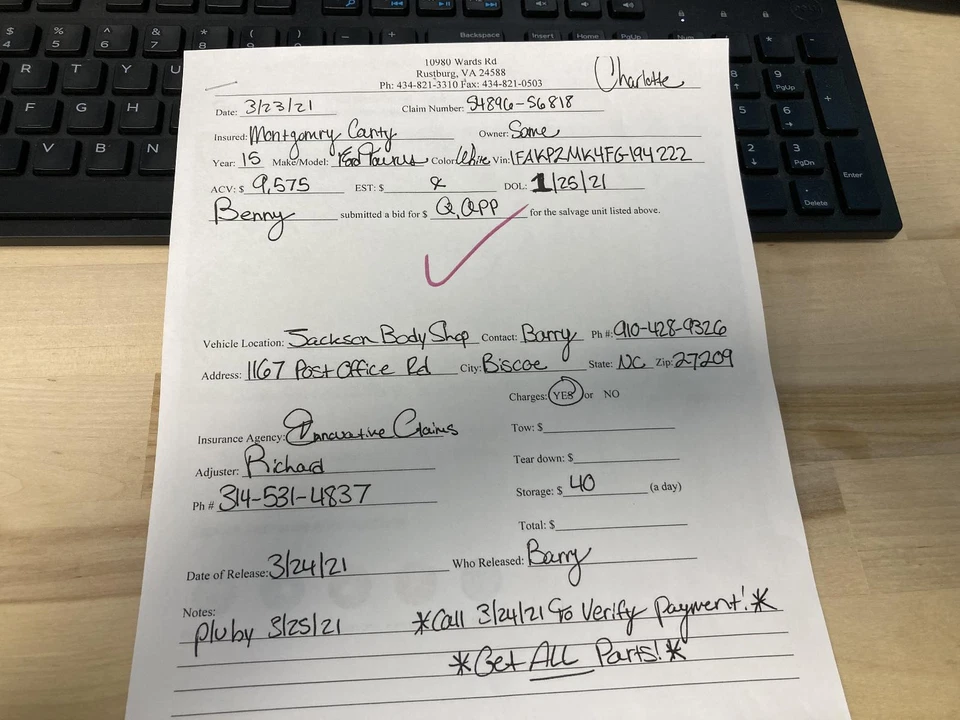 10980 Wards Rd
Rustburg, VA 24588
Ph: 434-821-3310 Fax: 434-821-0503
Charlotte
Date: 3/23/21 Claim Number: 54896-56818
Insured: Montgomry Canty Owner: Same
Year: 15 Make/Model: Ford Taurus Color: White Vin: 1FAKP2MK4FG194222
ACV: $ 9,575 EST: $ DOL: 1/25/21
Benny submitted a bid for $ for the salvage unit listed above.
Vehicle Location: Jackson Body Shop Contact: Barry Ph #: 910-428-9326
Address: 1167 Post Office Rd City: Biscoe State: NC Zip: 27209
Charges: YES or NO
Insurance Agency: Innovative Claims Tow: $
Adjuster: Richard Tear down: $
Ph # 314-531-4837 Storage: $ 40 (a day)
Total: $
Date of Release: 3/24/21 Who Released: Barry
Notes:
P/u by 3/25/21 *Call 3/24/21 To Verify payment!*
*Get ALL Parts!*
$ 4 % 5 ^ 6 & 7 * 8 ( ) - + Backspace Insert Home PgUp Num
R T Y U
F G H
V B N
9 PgUp
6
2 3 PgDn Enter
Delete